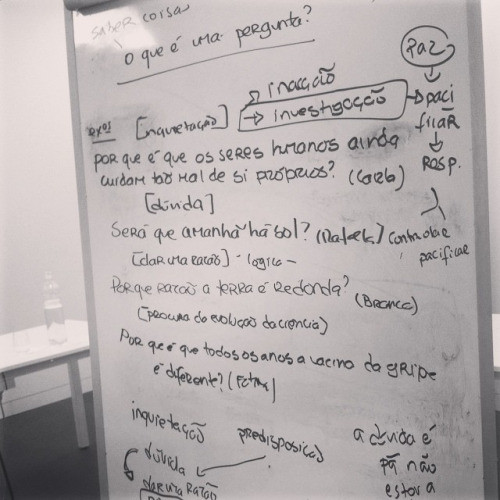 saber coisa
O que é uma pergunta?
Paz
inacção
exºs [inquietação] → investigação → paci
ficar
Por que é que os seres humanos ainda
cuidam tão mal de si próprios?
Rosp.
[dúvida]
Será que amanhã há sol? (Rafael) controlar e
pacificar
[dar uma razão] - logica -
Por que razão a terra é redonda?
(Branca)
(procura da evolução da ciência)
Por que é que todos os anos a vacina da gripe
é diferente?
inquietação
predisposição
a dúvida é
dúvida
pã não
dar uma razão
estar a